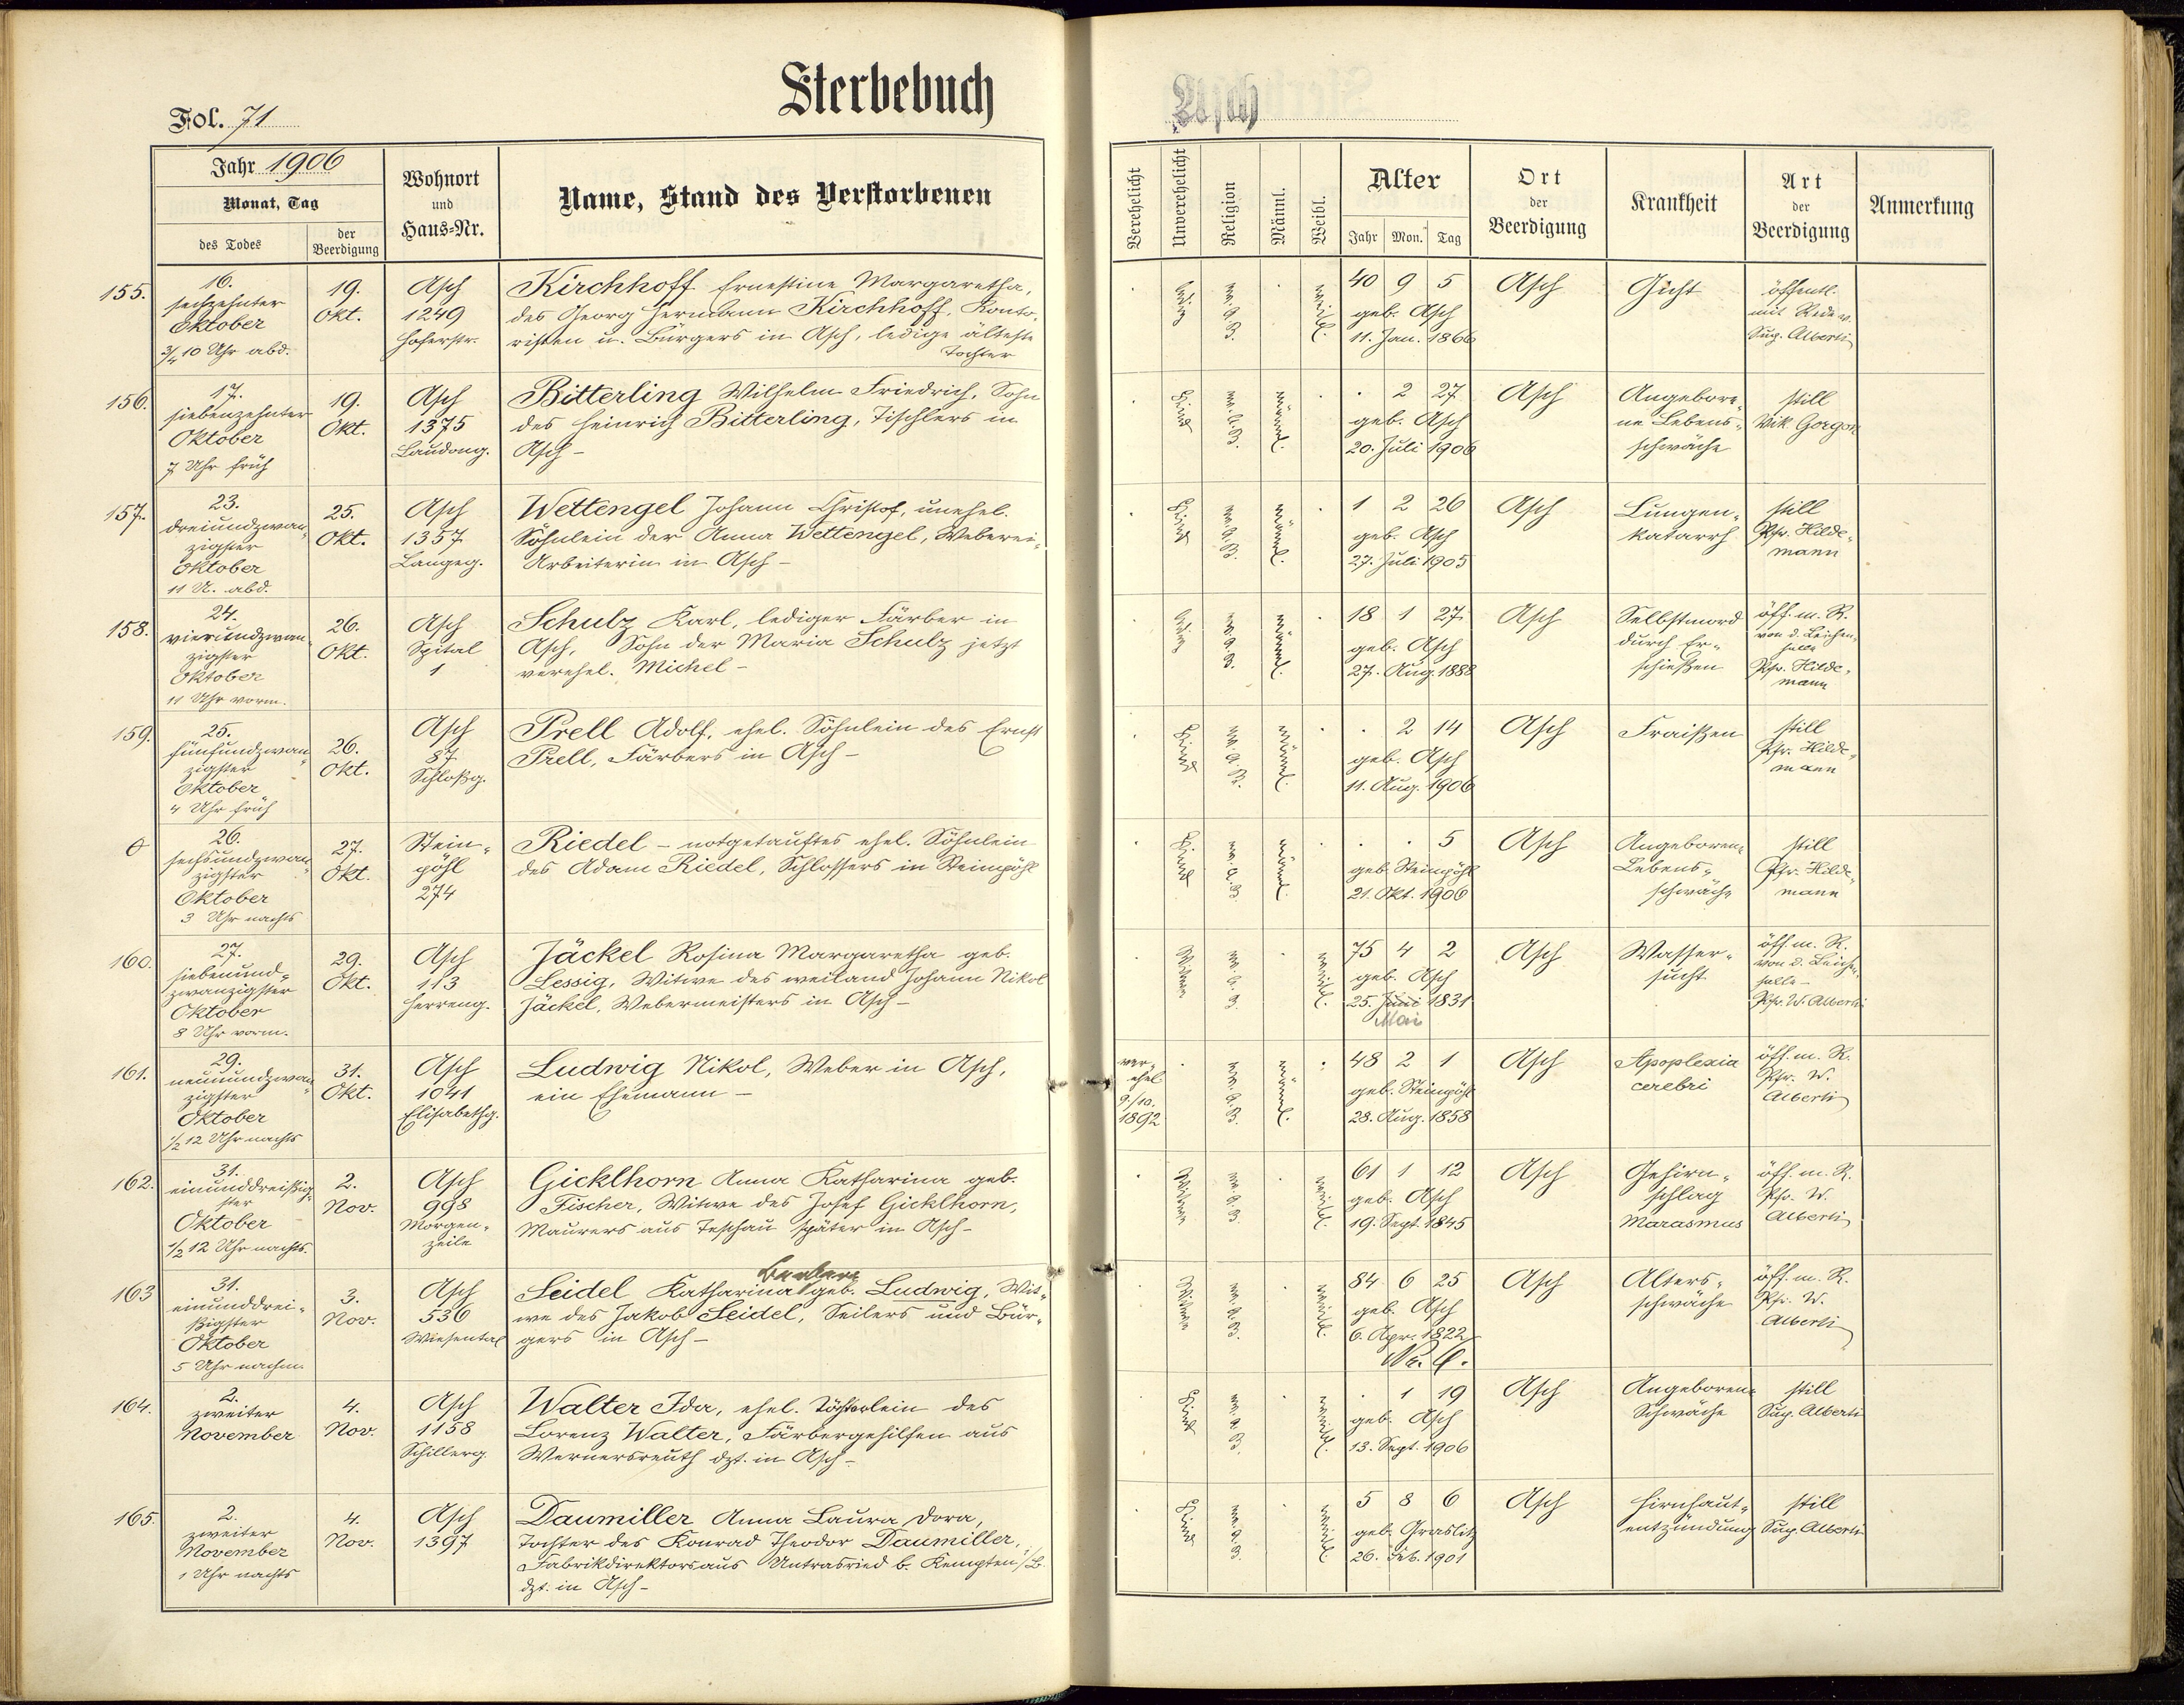 Sterbebuch
Asch
Fol. 71
Jahr 1906
Monat, Tag
des Todes
der Beerdigung
Wohnort und Haus-Nr.
Name, Stand des Verstorbenen
Verehelicht
Unverehelicht
Religion
Männl.
Weibl.
Alter
Jahr Mon. Tag
Ort der Beerdigung
Krankheit
Art der Beerdigung
Anmerkung
155.
16.
sechzehnter
Oktober
3/4 10 Uhr abd.
19.
Okt.
Asch
1249
Hoferstr.
Kirchhoff Ernestine Margaretha,
des Georg Hermann Kirchhoff, Konto-
risten u. Bürgers in Asch, ledige älteste
Tochter
ledig
ev. A. B.
weibl.
40 9 5
geb. Asch
11. Jan. 1866
Asch
Gicht
öffentl.
mit Rede v.
Sup. Alberti
156.
17.
siebenzehnter
Oktober
7 Uhr früh
19.
Okt.
Asch
1375
Laudong.
Bitterling Wilhelm Friedrich, Sohn
des Heinrich Bitterling, Tischlers in
Asch -
Kind
ev. A. B.
männl.
. 2 27
geb. Asch
20. Juli 1906
Asch
Angebore-
ne Lebens-
schwäche
still
Vik. Gorgon
157.
23.
dreiundzwan-
zigster
Oktober
11 U. abd.
25.
Okt.
Asch
1357
Langeg.
Wettengel Johann Christof, unehel.
Söhnlein der Anna Wettengel, Weberei-
Arbeiterin in Asch -
Kind
ev. A. B.
männl.
1 2 26
geb. Asch
27. Juli 1905
Asch
Lungen-
katarrh
still
Pfr. Hilde-
mann
158.
24.
vierundzwan-
zigster
Oktober
11 Uhr vorm.
26.
Okt.
Asch
Spital
1
Schulz Karl, lediger Färber in
Asch, Sohn der Maria Schulz jetzt
verehel. Michel -
ledig
ev. A. B.
männl.
18 1 27
geb. Asch
27. Aug. 1888
Asch
Selbstmord
durch Er-
schießen
öff. m. R.
von d. Leichen-
halle
Pfr. Hilde-
mann
159.
25.
fünfundzwan-
zigster
Oktober
4 Uhr früh
26.
Okt.
Asch
87
Schloßg.
Prell Adolf, ehel. Söhnlein des Ernst
Prell, Färbers in Asch -
Kind
ev. A. B.
männl.
. 2 14
geb. Asch
11. Aug. 1906
Asch
Fraißen
still
Pfr. Hilde-
mann
0
26.
sechsundzwan-
zigster
Oktober
3 Uhr nachts
27.
Okt.
Stein-
pöhl
274
Riedel - notgetauftes ehel. Söhnlein
des Adam Riedel, Schlossers in Steinpöhl
Kind
ev. A. B.
männl.
. . 5
geb. Steinpöhl
21. Okt. 1906
Asch
Angeborene
Lebens-
schwäche
still
Pfr. Hilde-
mann
160.
27.
siebenund-
zwanzigster
Oktober
8 Uhr vorm.
29.
Okt.
Asch
113
Herreng.
Jäckel Rosina Margaretha geb.
Lessig, Witwe des weiland Johann Nikol
Jäckel, Webermeisters in Asch -
Witwe
ev. A. B.
weibl.
75 4 2
geb. Asch
25. Juni 1831
Mai
Asch
Wasser-
sucht
öff. m. R.
von d. Leichen-
halle -
Pfr. W. Alberti
161.
29.
neunundzwan-
zigster
Oktober
1/2 12 Uhr nachts
31.
Okt.
Asch
1041
Elisabethg.
Ludwig Nikol, Weber in Asch,
ein Ehemann -
ver-
ehel
9/10.
1892
ev. A. B.
männl.
48 2 1
geb. Steinpöhl
28. Aug. 1858
Asch
Apoplexia
cerebri
öff. m. R.
Pfr. W.
Alberti
162.
31.
einunddreißig-
ster
Oktober
1/2 12 Uhr nachts.
2.
Nov.
Asch
998
Morgen-
zeile
Gicklhorn Anna Katharina geb.
Fischer, Witwe des Josef Gicklhorn,
Maurers aus Teschau später in Asch -
Witwe
ev. A. B.
weibl.
61 1 12
geb. Asch
19. Sept. 1845
Asch
Gehirn-
schlag
Marasmus
öff. m. R.
Pfr. W.
Alberti
163
31.
einunddrei-
ßigster
Oktober
5 Uhr nachm.
3.
Nov.
Asch
536
Wiesental
Barbara
Seidel Katharina geb. Ludwig, Wit-
we des Jakob Seidel, Seilers und Bür-
gers in Asch -
Witwe
ev. A. B.
weibl.
84 6 25
geb. Asch
6. Apr. 1822
Asch
Alters-
schwäche
öff. m. R.
Pfr. W.
Alberti
164.
2.
zweiter
November
4.
Nov.
Asch
1158
Schillerg.
Walter Ida, ehel. Töchterlein des
Lorenz Walter, Färbergehilfen aus
Wernersreuth dzt. in Asch -
Kind
ev. A. B.
weibl.
. 1 19
geb. Asch
13. Sept. 1906
Asch
Angeborene
Schwäche
still
Sup. Alberti
165.
2.
zweiter
November
1 Uhr nachts
4.
Nov.
Asch
1397
Daumiller Anna Laura Dora,
Tochter des Konrad Theodor Daumiller,
Fabrikdirektors aus Untrasried b. Kempten i/B.
dzt. in Asch -
Kind
ev. A. B.
weibl.
5 8 6
geb. Graslitz
26. Feb. 1901
Asch
Hirnhaut-
entzündung
still
Sup. Alberti